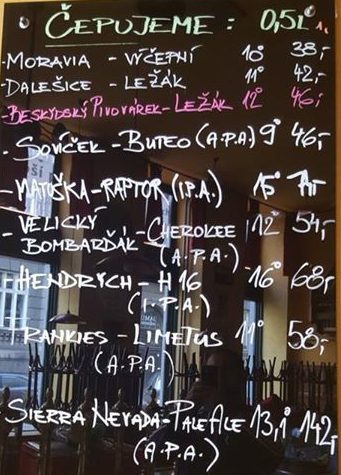 ČEPUJEME: 0,5L
-MORAVIA - VÝČEPNÍ 10° 38,-
-DALEŠICE - LEŽÁK 11° 42,-
-BESKYDSKÝ PIVOVÁREK-LEŽÁK 12° 46,-
-SOVÍČEK-BUTEO (A.P.A.) 9° 46,-
-MATUŠKA-RAPTOR (I.P.A.) 15°
-VELICKÝ
BOMBARĎÁK - CHEROKEE 12° 54,-
(A.P.A.)
-HENDRYCH - H16 16° 68,-
(I.P.A.)
-FRANKIES - LIMETUS 11° 58,-
(A.P.A.)
-SIERRA NEVADA-PALE ALE 13,1° 142,-
(A.P.A.)